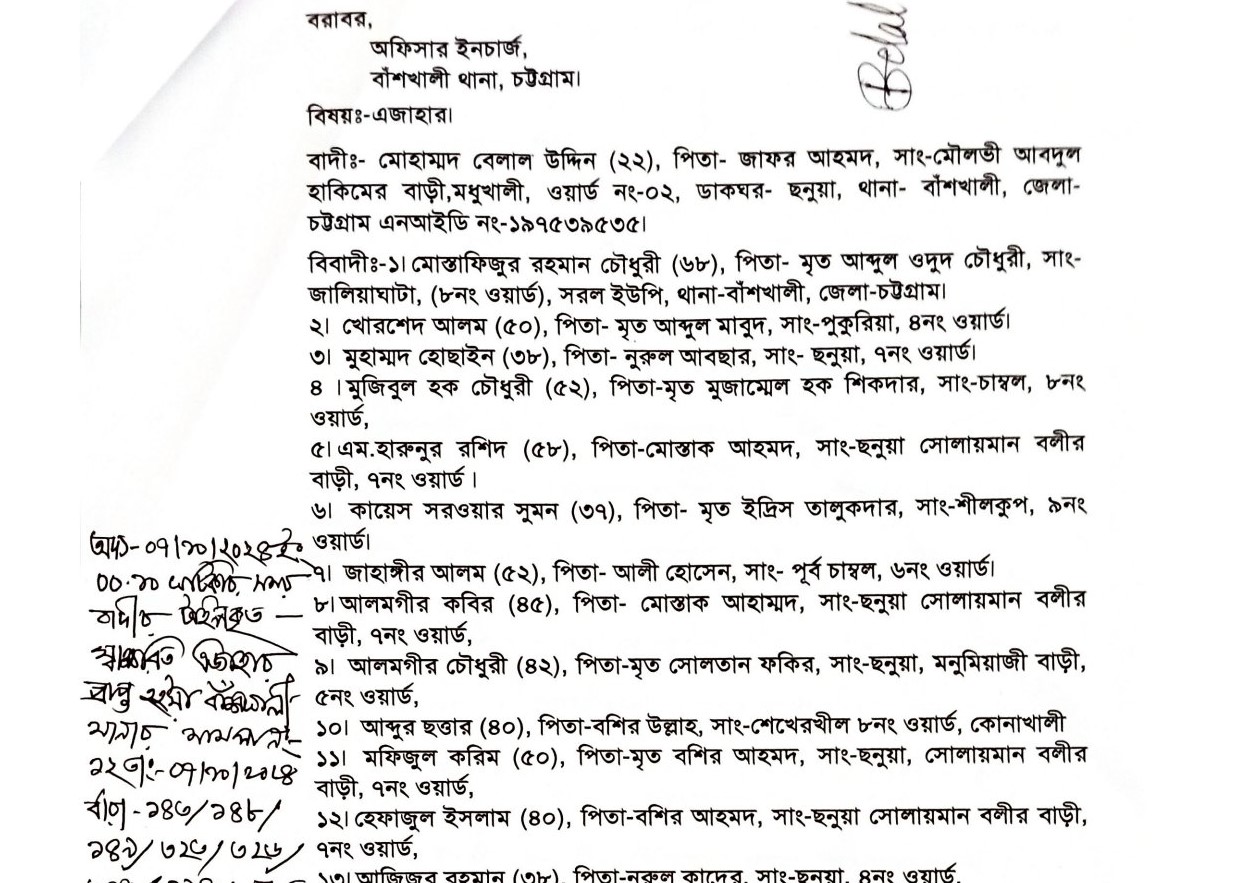 বরাবর,
অফিসার ইনচার্জ,
বাঁশখালী থানা, চট্টগ্রাম।
Belal
বিষয়ঃ-এজাহার।
বাদীঃ- মোহাম্মদ বেলাল উদ্দিন (২২), পিতা- জাফর আহমদ, সাং-মৌলভী আবদুল
হাকিমের বাড়ী,মধুখালী, ওয়ার্ড নং-০২, ডাকঘর- ছনুয়া, থানা- বাঁশখালী, জেলা-
চট্টগ্রাম এনআইডি নং-১৯৭৫৩৯৫৩৫।
বিবাদীঃ-১। মোস্তাফিজুর রহমান চৌধুরী (৬৮), পিতা- মৃত আব্দুল ওদুদ চৌধুরী, সাং-
জালিয়াঘাটা, (৮নং ওয়ার্ড), সরল ইউপি, থানা-বাঁশখালী, জেলা-চট্টগ্রাম।
২। খোরশেদ আলম (৫০), পিতা- মৃত আব্দুল মাবুদ, সাং-পুকুরিয়া, ৪নং ওয়ার্ড।
৩। মুহাম্মদ হোছাইন (৩৮), পিতা- নুরুল আবছার, সাং- ছনুয়া, ৭নং ওয়ার্ড।
৪ । মুজিবুল হক চৌধুরী (৫২), পিতা-মৃত মুজাম্মেল হক শিকদার, সাং-চাম্বল, ৮নং
ওয়ার্ড,
৫। এম.হারুনুর রশিদ (৫৮), পিতা-মোস্তাক আহমদ, সাং-ছনুয়া সোলায়মান বলীর
বাড়ী, ৭নং ওয়ার্ড ।
৬। কায়েস সরওয়ার সুমন (৩৭), পিতা- মৃত ইদ্রিস তালুকদার, সাং-শীলকুপ, ৯নং
ওয়ার্ড।
৭। জাহাঙ্গীর আলম (৫২), পিতা- আলী হোসেন, সাং- পূর্ব চাম্বল, ৬নং ওয়ার্ড।
৮। আলমগীর কবির (৪৫), পিতা- মোস্তাক আহাম্মদ, সাং-ছনুয়া সোলায়মান বলীর
বাড়ী, ৭নং ওয়ার্ড,
৯। আলমগীর চৌধুরী (৪২), পিতা-মৃত সোলতান ফকির, সাং-ছনুয়া, মনুমিয়াজী বাড়ী,
৫নং ওয়ার্ড,
১০। আব্দুর ছত্তার (৪০), পিতা-বশির উল্লাহ, সাং-শেখেরখীল ৮নং ওয়ার্ড, কোনাখালী
১১। মফিজুল করিম (৫০), পিতা-মৃত বশির আহমদ, সাং-ছনুয়া, সোলায়মান বলীর
বাড়ী, ৭নং ওয়ার্ড,
১২। হেফাজুল ইসলাম (৪০), পিতা-বশির আহমদ, সাং-ছনুয়া সোলায়মান বলীর বাড়ী,
৭নং ওয়ার্ড,
১৩। আজিজুর রহমান (৩৮), পিতা-নুরুল কাদের, সাং-ছনুয়া, ৪নং ওয়ার্ড,
অদ্য-০৭/১০/২০২৪ইং
০০.১০ ঘটিকার সময়
বাদীর
স্বাক্ষরিত এজাহার
বাঁশখালী
থানার মামলা নং-
১২ তাং-০৭/১০/২০২৪
ধারা-১৪৩/১৪৮/
১৪৯/৩২৩/৩২৬/